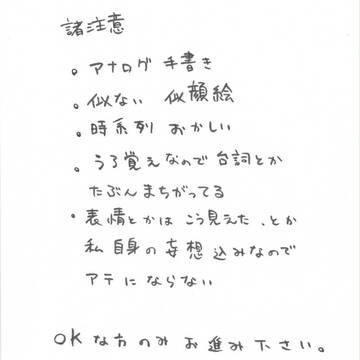 諸注意
。アナログ 手書き
。似ない 似顔絵
。時系列 おかしい
。うろ覚えなので台詞とか
たぶんまちがってる
・表情とかは こう見えた、とか
私自身の妄想込みなので
アテにならない
OKな方のみお進み下さい。